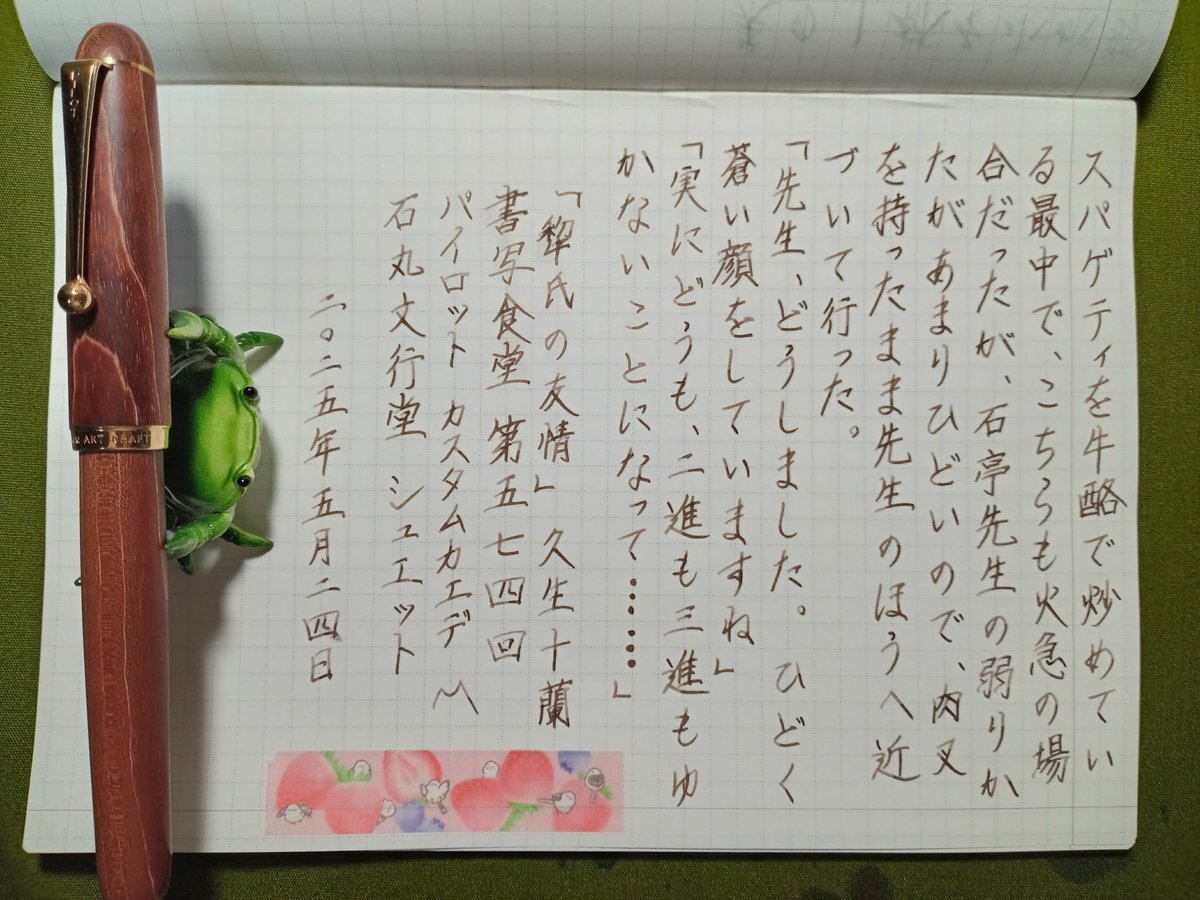 スパゲティを牛酪で炒めてい
る最中で、こちらも火急の場
合だったが、石亭先生の弱りか
たがあまりひどいので、肉叉
を持ったまま先生のほうへ近
づいて行った。
「先生、どうしました。ひどく
蒼い顔をしていますね」
「実にどうも、二進も三進もゆ
かないことになって……」
「犂氏の友情」 久生十蘭
書写食堂 第五七四回
パイロット カスタムカエデ M
石丸文行堂 シュエット
二〇二五年五月二四日
ART CRAFT